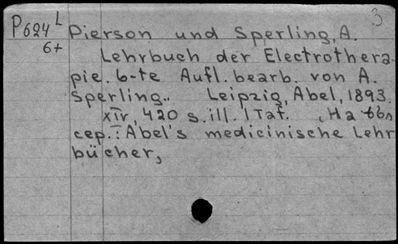 3
P624 L Pierson und Sperling, A.
6+ Lehrbuch der Electrothera-
pie. 6-te Aufl. bearb. von A.
Sperling.. Leipzig, Abel, 1893.
XIV, 420 s. ill. 1 Taf. , На обл
сер.: Abel's medicinische Lehr
bücher,